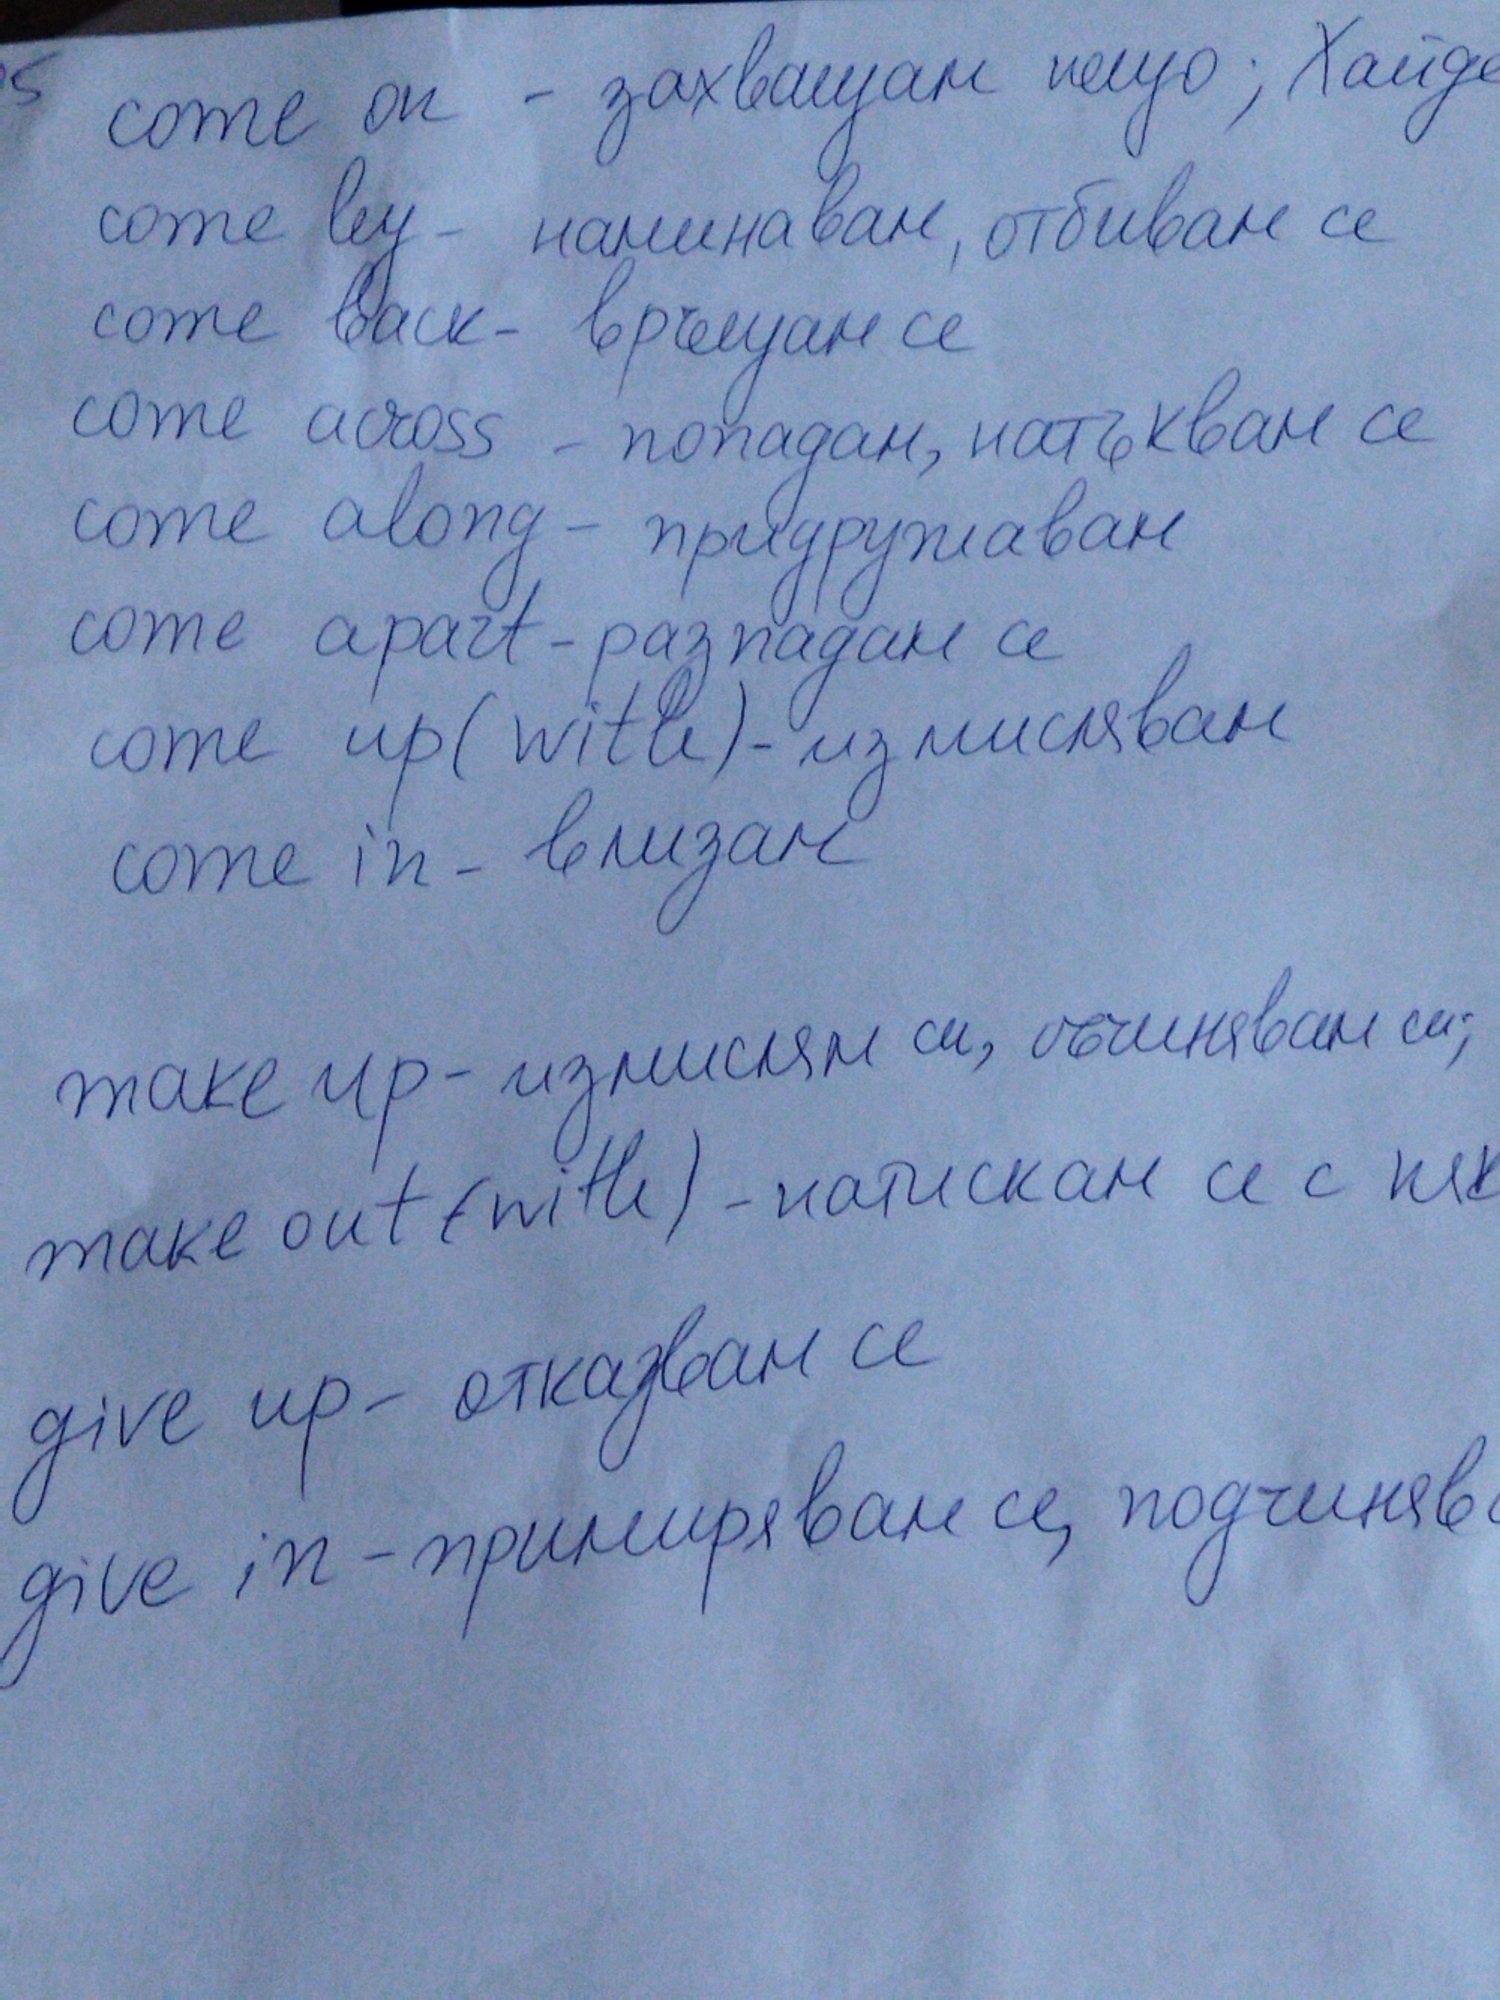 come on - захващам нещо; Хайде
come by - наминавам, отбивам се
come back - връщам се
come across - попадам, натъквам се
come along - придружавам
come apart - разпадам се
come up (with) - измислявам
come in - влизам
make up - измислям си, съчинявам си;
make out (with) - натискам се с няк
give up - отказвам се
give in - примирявам се, подчинява